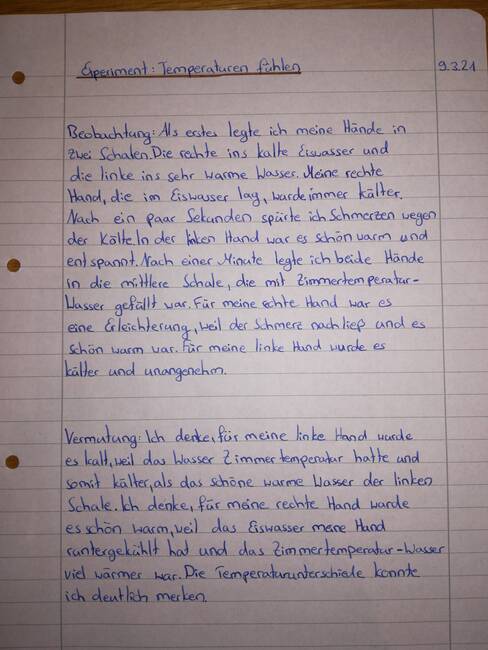 Experiment: Temperaturen fühlen 9.3.21
Beobachtung: Als erstes legte ich meine Hände in
zwei Schalen. Die rechte ins kalte Eiswasser und
die linke ins sehr warme Wasser. Meine rechte
Hand, die im Eiswasser lag, wurde immer kälter.
Nach ein paar Sekunden spürte ich Schmerzen wegen
der Kälte. In der linken Hand war es schön warm und
entspannt. Nach einer Minute legte ich beide Hände
in die mittlere Schale, die mit Zimmertemperatur-
Wasser gefüllt war. Für meine rechte Hand war es
eine Erleichterung, weil der Schmerz nachließ und es
schön warm war. Für meine linke Hand wurde es
kälter und unangenehm.
Vermutung: Ich denke, für meine linke Hand wurde
es kalt, weil das Wasser Zimmertemperatur hatte und
somit kälter, als das schöne warme Wasser der linken
Schale. Ich denke, für meine rechte Hand wurde
es schön warm, weil das Eiswasser meine Hand
runtergekühlt hat und das Zimmertemperatur-Wasser
viel wärmer war. Die Temperaturunterschiede konnte
ich deutlich merken.